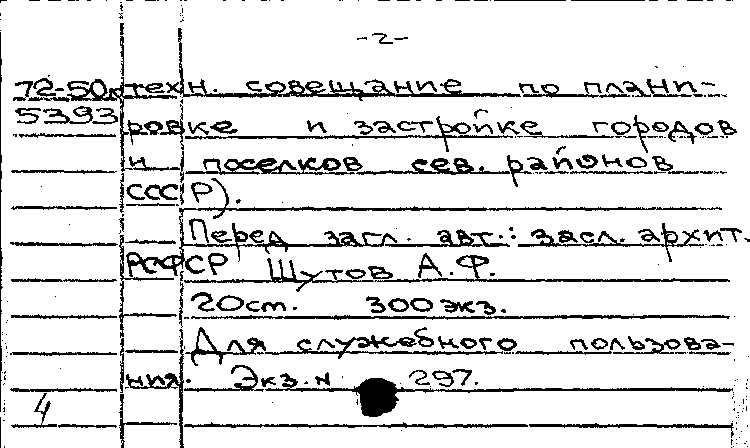 -2-
72-50к техн. совещание по плани-
5393 ровке и застройке городов
и поселков сев. районов
СССР).
Перед загл. авт.: засл. архит.
РСФСР Шутов А.Ф.
20 cm. 300 экз.
Для служебного пользова-
ния. Экз. N 297.
4